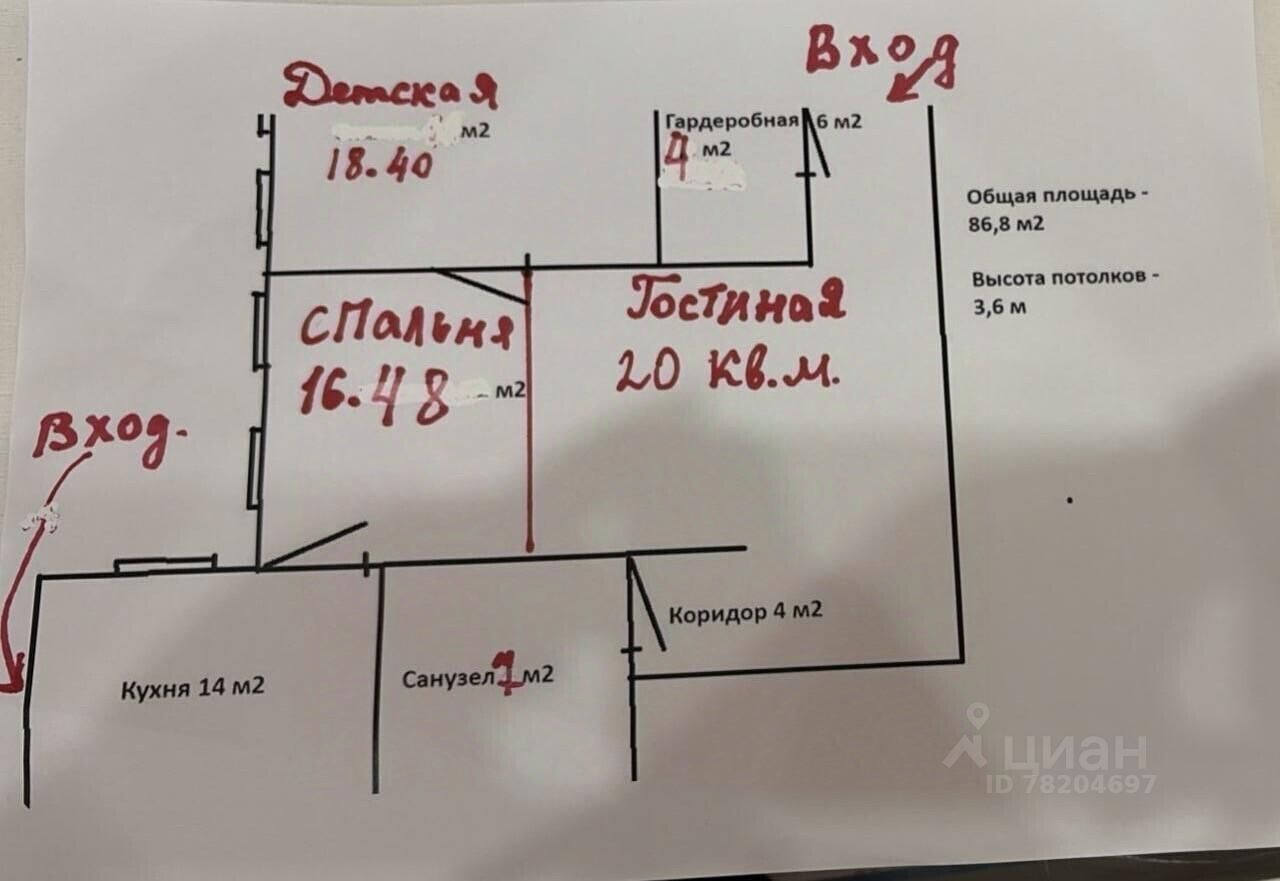 Вход
Детская
м2
18.40
Гардеробная 6 м2
4 м2
Общая площадь -
86,8 м2
Высота потолков -
3,6 м
Гостиная
20 кв.м.
спальня
16.48 м2
Вход.
Коридор 4 м2
Кухня 14 м2
Санузел 7 м2
циан
ID 78204697